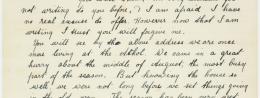 not writing to you before, ? I am afraid I have
no real excuse to offer. However now that I am
writing I trust you will forgive me.
You will see by the above address we are once
more living at the Hotel. We came in a great
hurry about the middle of August, the most busy
part of the season. But knowing the house so
well, we were not long before we set things going
in the old way. The season has been very good